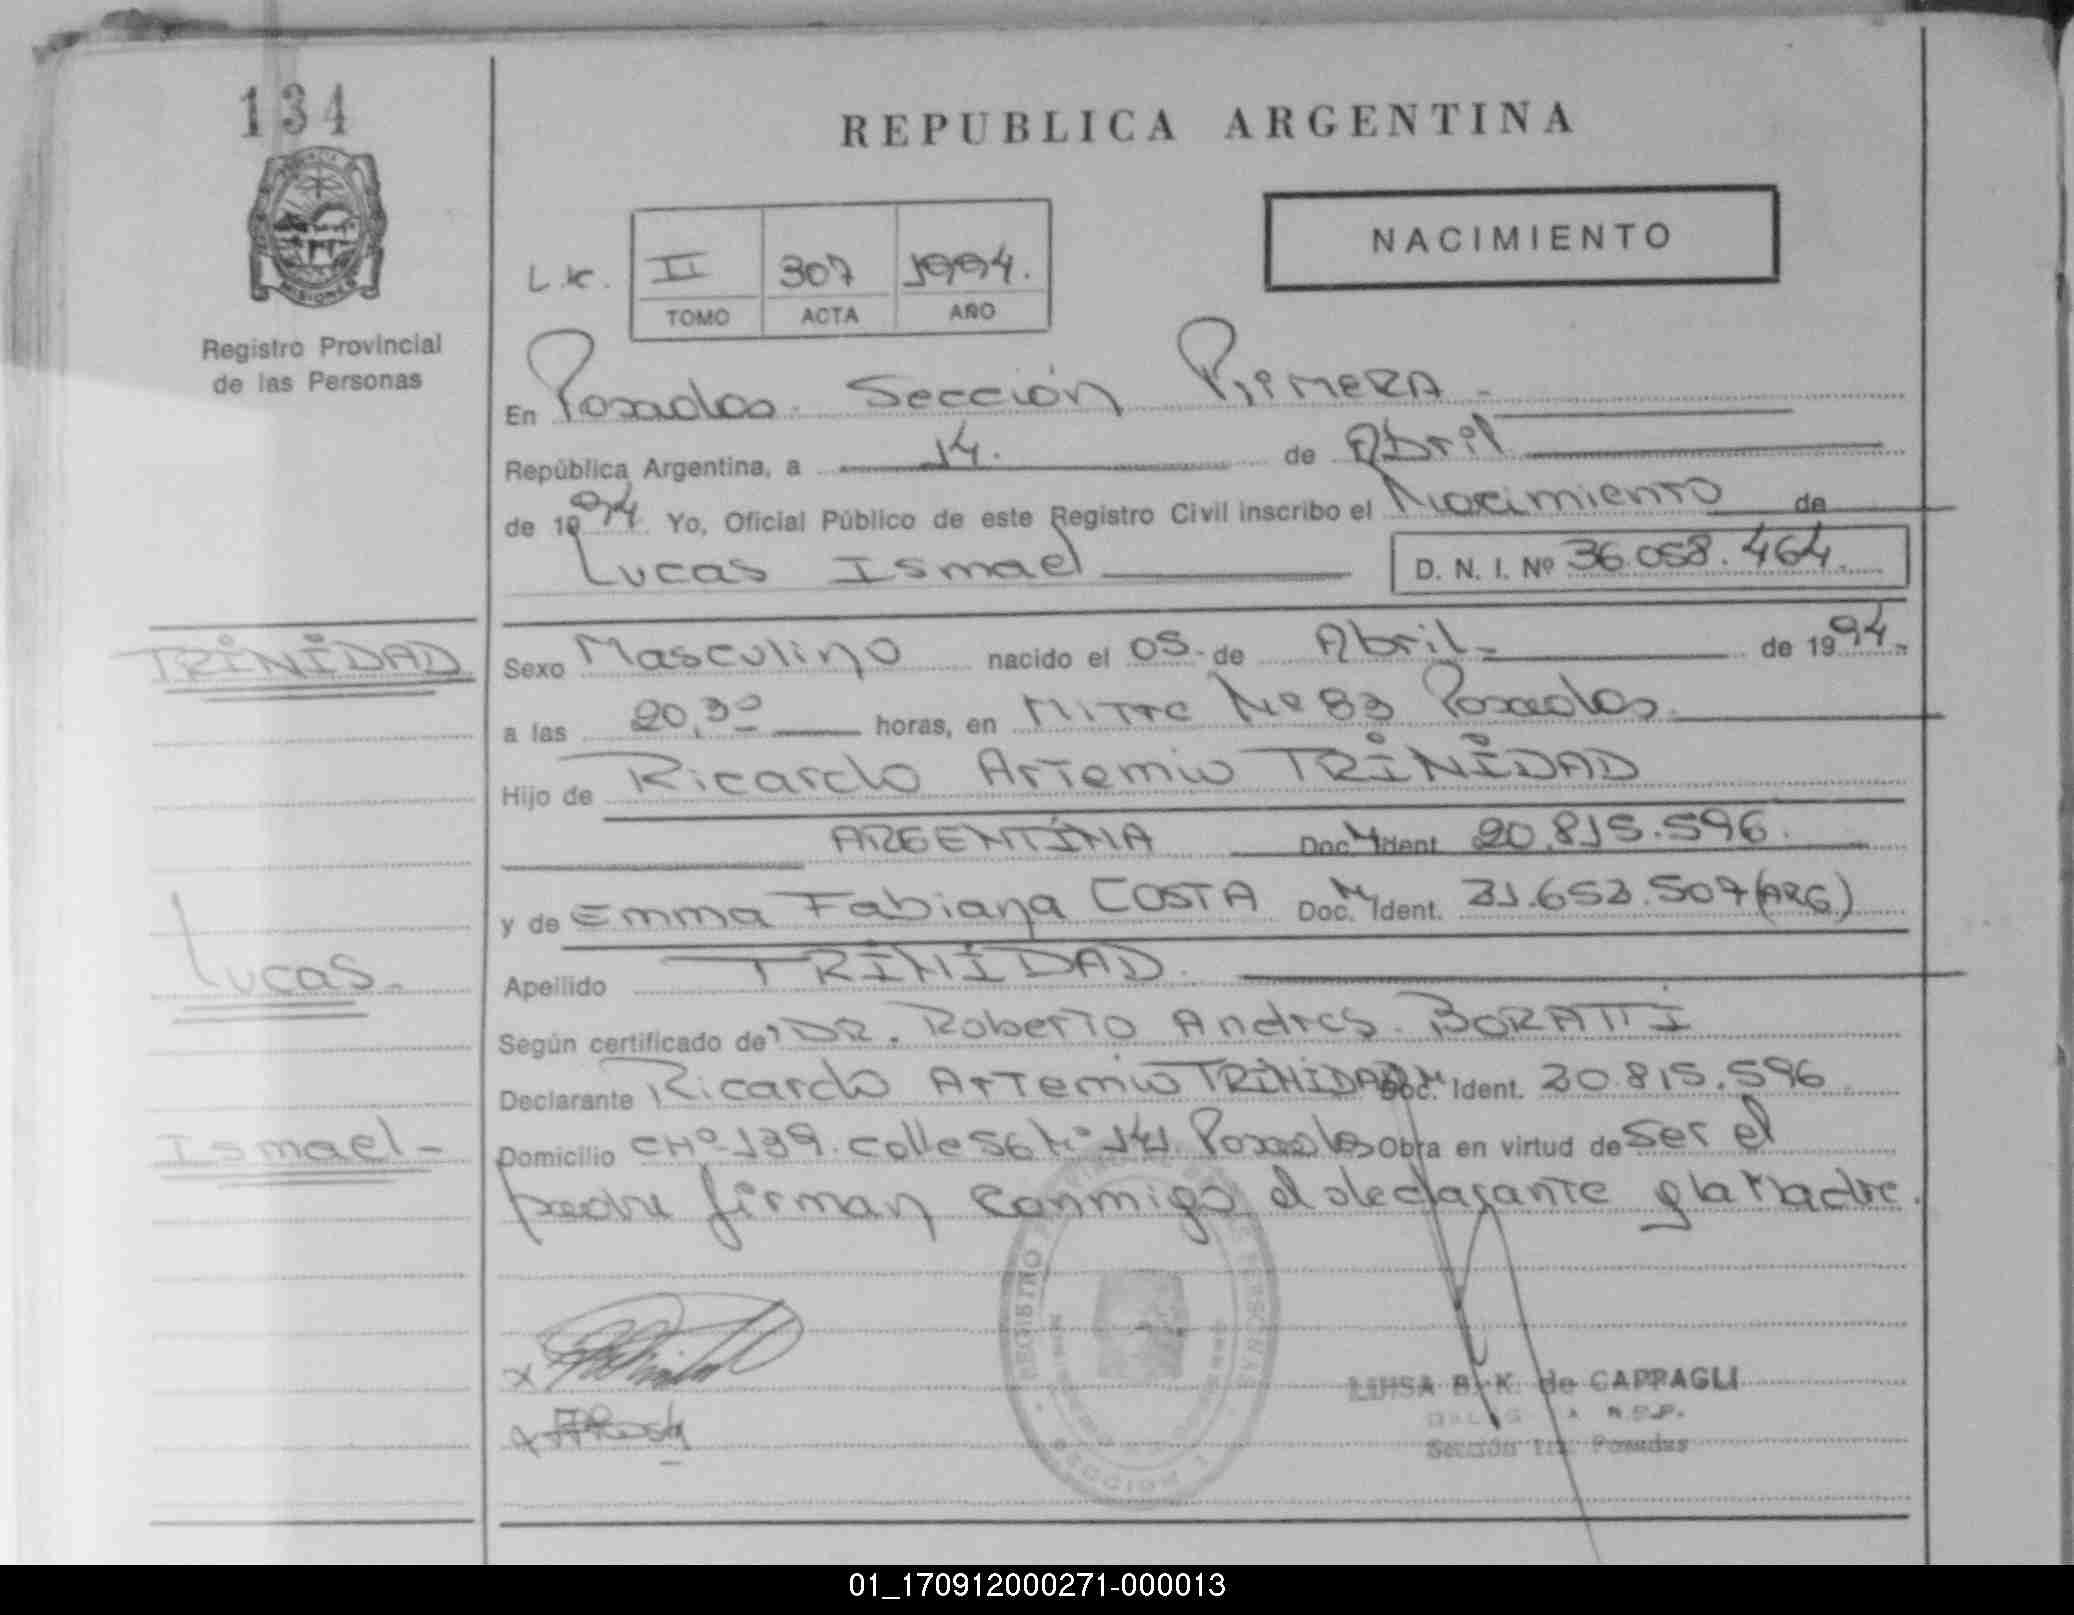 134
REPUBLICA ARGENTINA
NACIMIENTO
L.K. II 307 1994.
TOMO ACTA AÑO
MISIONES
Registro Provincial
de las Personas
En Posadas. Sección Primera -
República Argentina, a 14. de Abril
de 1994 Yo, Oficial Público de este Registro Civil inscribo el Nacimiento de
Lucas Ismael D. N. I. Nº 36.058.464.
TRINIDAD
Sexo Masculino nacido el 05. de Abril- de 1994.-
a las 20,30 horas, en Mitre Nº 83 Posadas.
Hijo de Ricardo Artemio TRINIDAD
ARGENTINA Doc. N Ident 20.815.596.
y de Emma Fabiana COSTA Doc. N Ident. 21.653.507 (ARG.)
Apellido TRINIDAD.
Lucas.-
Según certificado de DR. Roberto Andres. BORATTI
Declarante Ricardo Artemio TRINIDAD Doc. N Ident. 20.815.596
Ismael-
Domicilio CHº 139. calle 56 Nº 141. Posadas Obra en virtud de ser el
padre firman conmigo el declarante y la Madre.
REGISTRO PERSONAS
SECCION 1
LUISA B. K. de CAPPAGLI
R.P.P.
Sección 1ra. Posadas
01_170912000271-000013